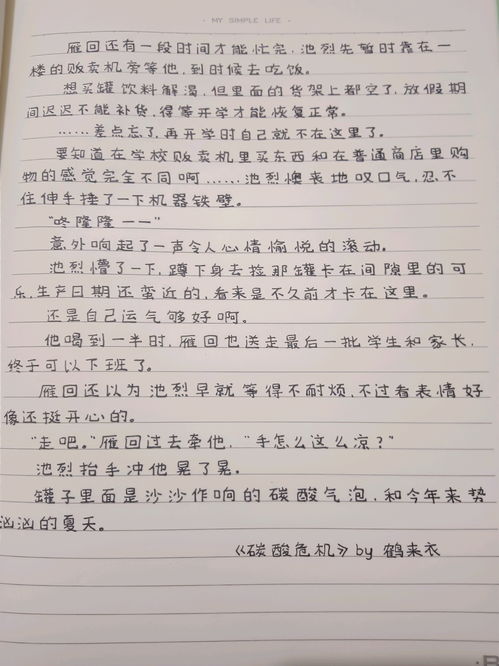 · MY SIMPLE LIFE ·
雁回还有一段时间才能忙完，池烈先暂时靠在一
楼的贩卖机旁等他，到时候去吃饭。
想买罐饮料解渴，但里面的货架上都空了，放假期
间迟迟不能补货，得等开学才能恢复正常。
……差点忘了，再开学时自己就不在这里了。
要知道在学校贩卖机里买东西和在普通商店里购
物的感觉完全不同啊……池烈懊丧地叹口气，忍不
住伸手捶了一下机器铁壁。
“咚隆隆——”
意外响起了一声令人心情愉悦的滚动。
池烈懵了一下，蹲下身去捡那罐卡在间隙里的可
乐，生产日期还蛮近的，看来是不久前才卡在这里。
还是自己运气够好啊。
他喝到一半时，雁回也送走最后一批学生和家长，
终于可以下班了。
雁回还以为池烈早就等得不耐烦，不过看表情好
像还挺开心的。
“走吧。”雁回过去牵他，“手怎么这么凉？”
池烈抬手冲他晃了晃。
罐子里面是沙沙作响的碳酸气泡，和今年来势
汹汹的夏天。
《碳酸危机》by 鹤来衣